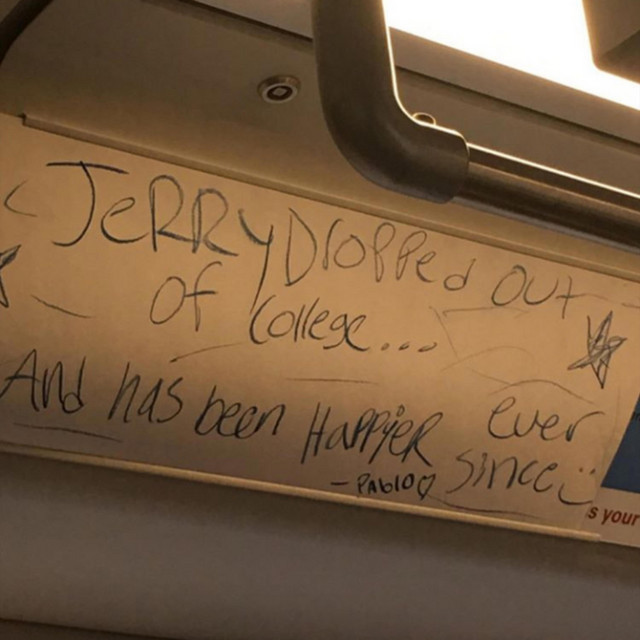 JeRRY Dropped out
of College...
And has been HAppieR ever
since
- PAblo
s your